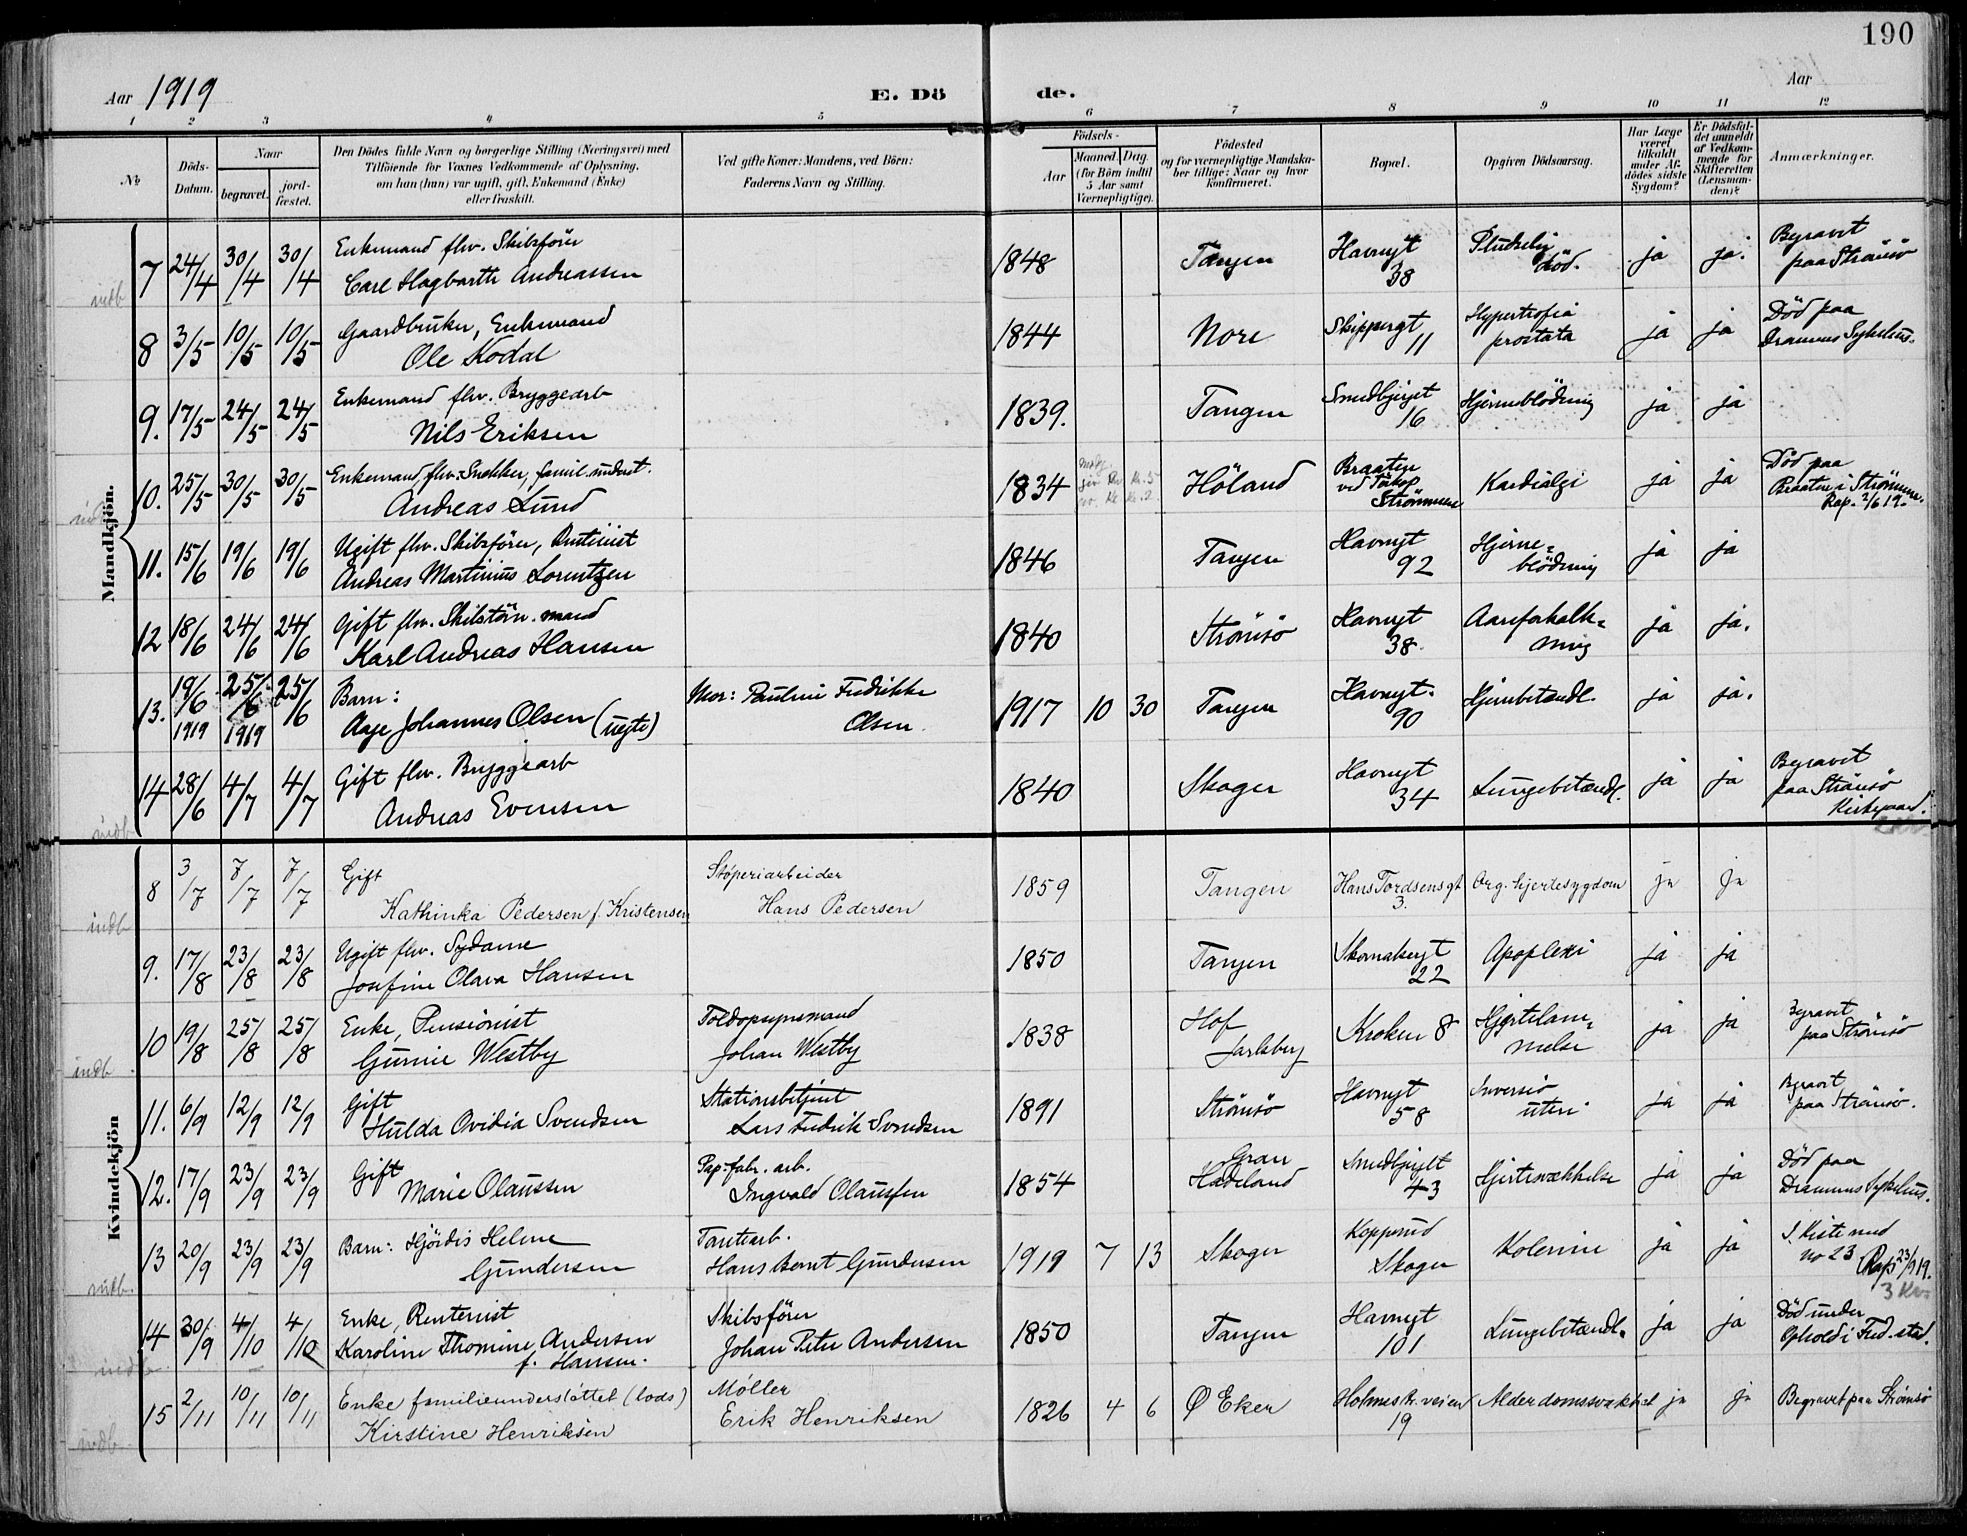 190
Aar 1919
E. Döde.
Aar
1 2 3 4 5 6 7 8 9 10 11 12
No
Döds-Datum.
Naar
begravet.
jord-fæstet.
Den Dödes fulde Navn og borgerlige Stilling (Næringsvei) med
Tilföiende for Voxnes Vedkommende af Oplysning,
om han (hun) var ugift, gift, Enkemand (Enke)
eller fraskilt.
Ved gifte Koner: Mandens, ved Börn:
Faderens Navn og Stilling.
Födsels-
Aar
Maaned. Dag.
(for Börn indtil
5 Aar samt
Værnepligtige).
Födested
og for værnepligtige Mandska-
ber tillige: Naar og hvor
konfirmeret.
Bopæl.
Opgiven Dödsaarsag.
Har Læge
været
tilkaldt
under Af-
dödes sidste
Sygdom?
Er Dödsfal-
det anmeldt
af Vedkom-
mende for
Skifteretten
(Lensman-
den)?
Anmærkninger.
Mandkjön.
indb
7 24/4 30/4 30/4 Enkemand flv. Skibsförer
Carl Hagbarth Andreassen
1848 Tangen Havnegt 38 Pludselig död. ja ja. Begravet
paa Strömsö
8 3/5 10/5 10/5 Gaardbruker, Enkemand
Ole Kodal
1844 Nore Skippergt 11 Hypertrofia
prostata ja ja Död paa
Drammens Sykehus.
9. 17/5 24/5 24/5 Enkemand flv. Bryggearb
Nils Eriksen
1839. Tangen Smedbjerget 16 Hjerneblödning ja ja
10. 25/5 30/5 30/5 Enkemand, flv. Snekker, famil. underst.
Andreas Lund
1834 Höland Braaten
ved
Strömmen Kardialgi ja ja Död paa
Braaten i Strömmen.
Rap. 2/6 19.
11. 15/6 19/6 19/6 Ugift flv. Skibsförer, Rentenist
Andreas Martinius Lorentzen
1846 Tangen Havnegt 92 Hjerne=
blödning ja ja
12 18/6 24/6 24/6 Gift flv. Skibstöm. mand
Karl Andreas Hansen
1840 Strömsö Havnegt 38. Aareforkalk=
ning ja ja.
13. 19/6 1919 25/6 1919 25/6 Barn:
Aage Johannes Olsen (uegte)
Mor: Pauline Fredrikke
Olsen.
1917 10 30 Tangen Havnegt. 90 Hjernebetændl. ja ja.
14 28/6 4/7 4/7 Gift flv. Bryggearb
Andreas Evensen
1840 Skoger Havnegt 34 Lungebetændl. ja ja Begravet
paa Strömsö
Kirkegaard.
indb
Kvindekjön
8 3/7 7/7 7/7 Gift
Kathinka Pedersen f. Kristensen
Støperiarbeider
Hans Pedersen
1859 Tangen Hans Tordsensgt 3. Org. hjertesygdom ja ja
indb
9. 17/8 23/8 23/8 Ugift flv. Sydame
Josefine Olava Hansen
1850 Tangen Skomakergt 22 Apoplexi ja ja
10 19/8 25/8 25/8 Enke, Pensionist
Gunine Westby
Toldopsynsmand
Johan Westby
1838 Hof
Jarlsberg Kroken 8 Hjertelam=
melse ja ja Begravet
paa Strömsö
indb
11. 6/9 12/9 12/9 Gift
Hulda Ovidia Svendsen
Stationsbetjent
Lars Fredrik Svendsen
1891 Strömsö Havnegt 58 Inversio
uteri ja ja Begravet
paa Strömsö.
12. 17/9 23/9 23/9 Gift
Marie Olaussen
Pap. fabr. arb.
Ingvald Olaussen
1854 Gran
Hadeland Smedbjerget 43 Hjertesvækkelse ja ja Död paa
Drammens Sykehus.
13 20/9 23/9 23/9 Barn: Hjördis Helene
Gundersen
Tomtearb.
Hans Bernt Gundersen
1919 7 13 Skoger Kopperud
Skoger Kolerine ja ja I kiste med
no 23 Rap. 23/9 19.
3 Kv.
indb.
14 30/9 4/10 4/10 Enke, Rentenist
Karoline Thomine Andersen
f. Hansen.
Skibsförer
Johan Peter Andersen
1850 Tangen Havnegt 101 Lungebetændl. ja ja Död under
Ophold i Fred.stad.
indb
15 2/11 10/11 10/11 Enke familieunderstøttet (lods)
Kirstine Henriksen
Møller
Erik Henriksen
1826 4 6 Ø Eker Holmestr. veien 19 Alderdomssvakhet ja ja Begravet paa Strømsø
indb